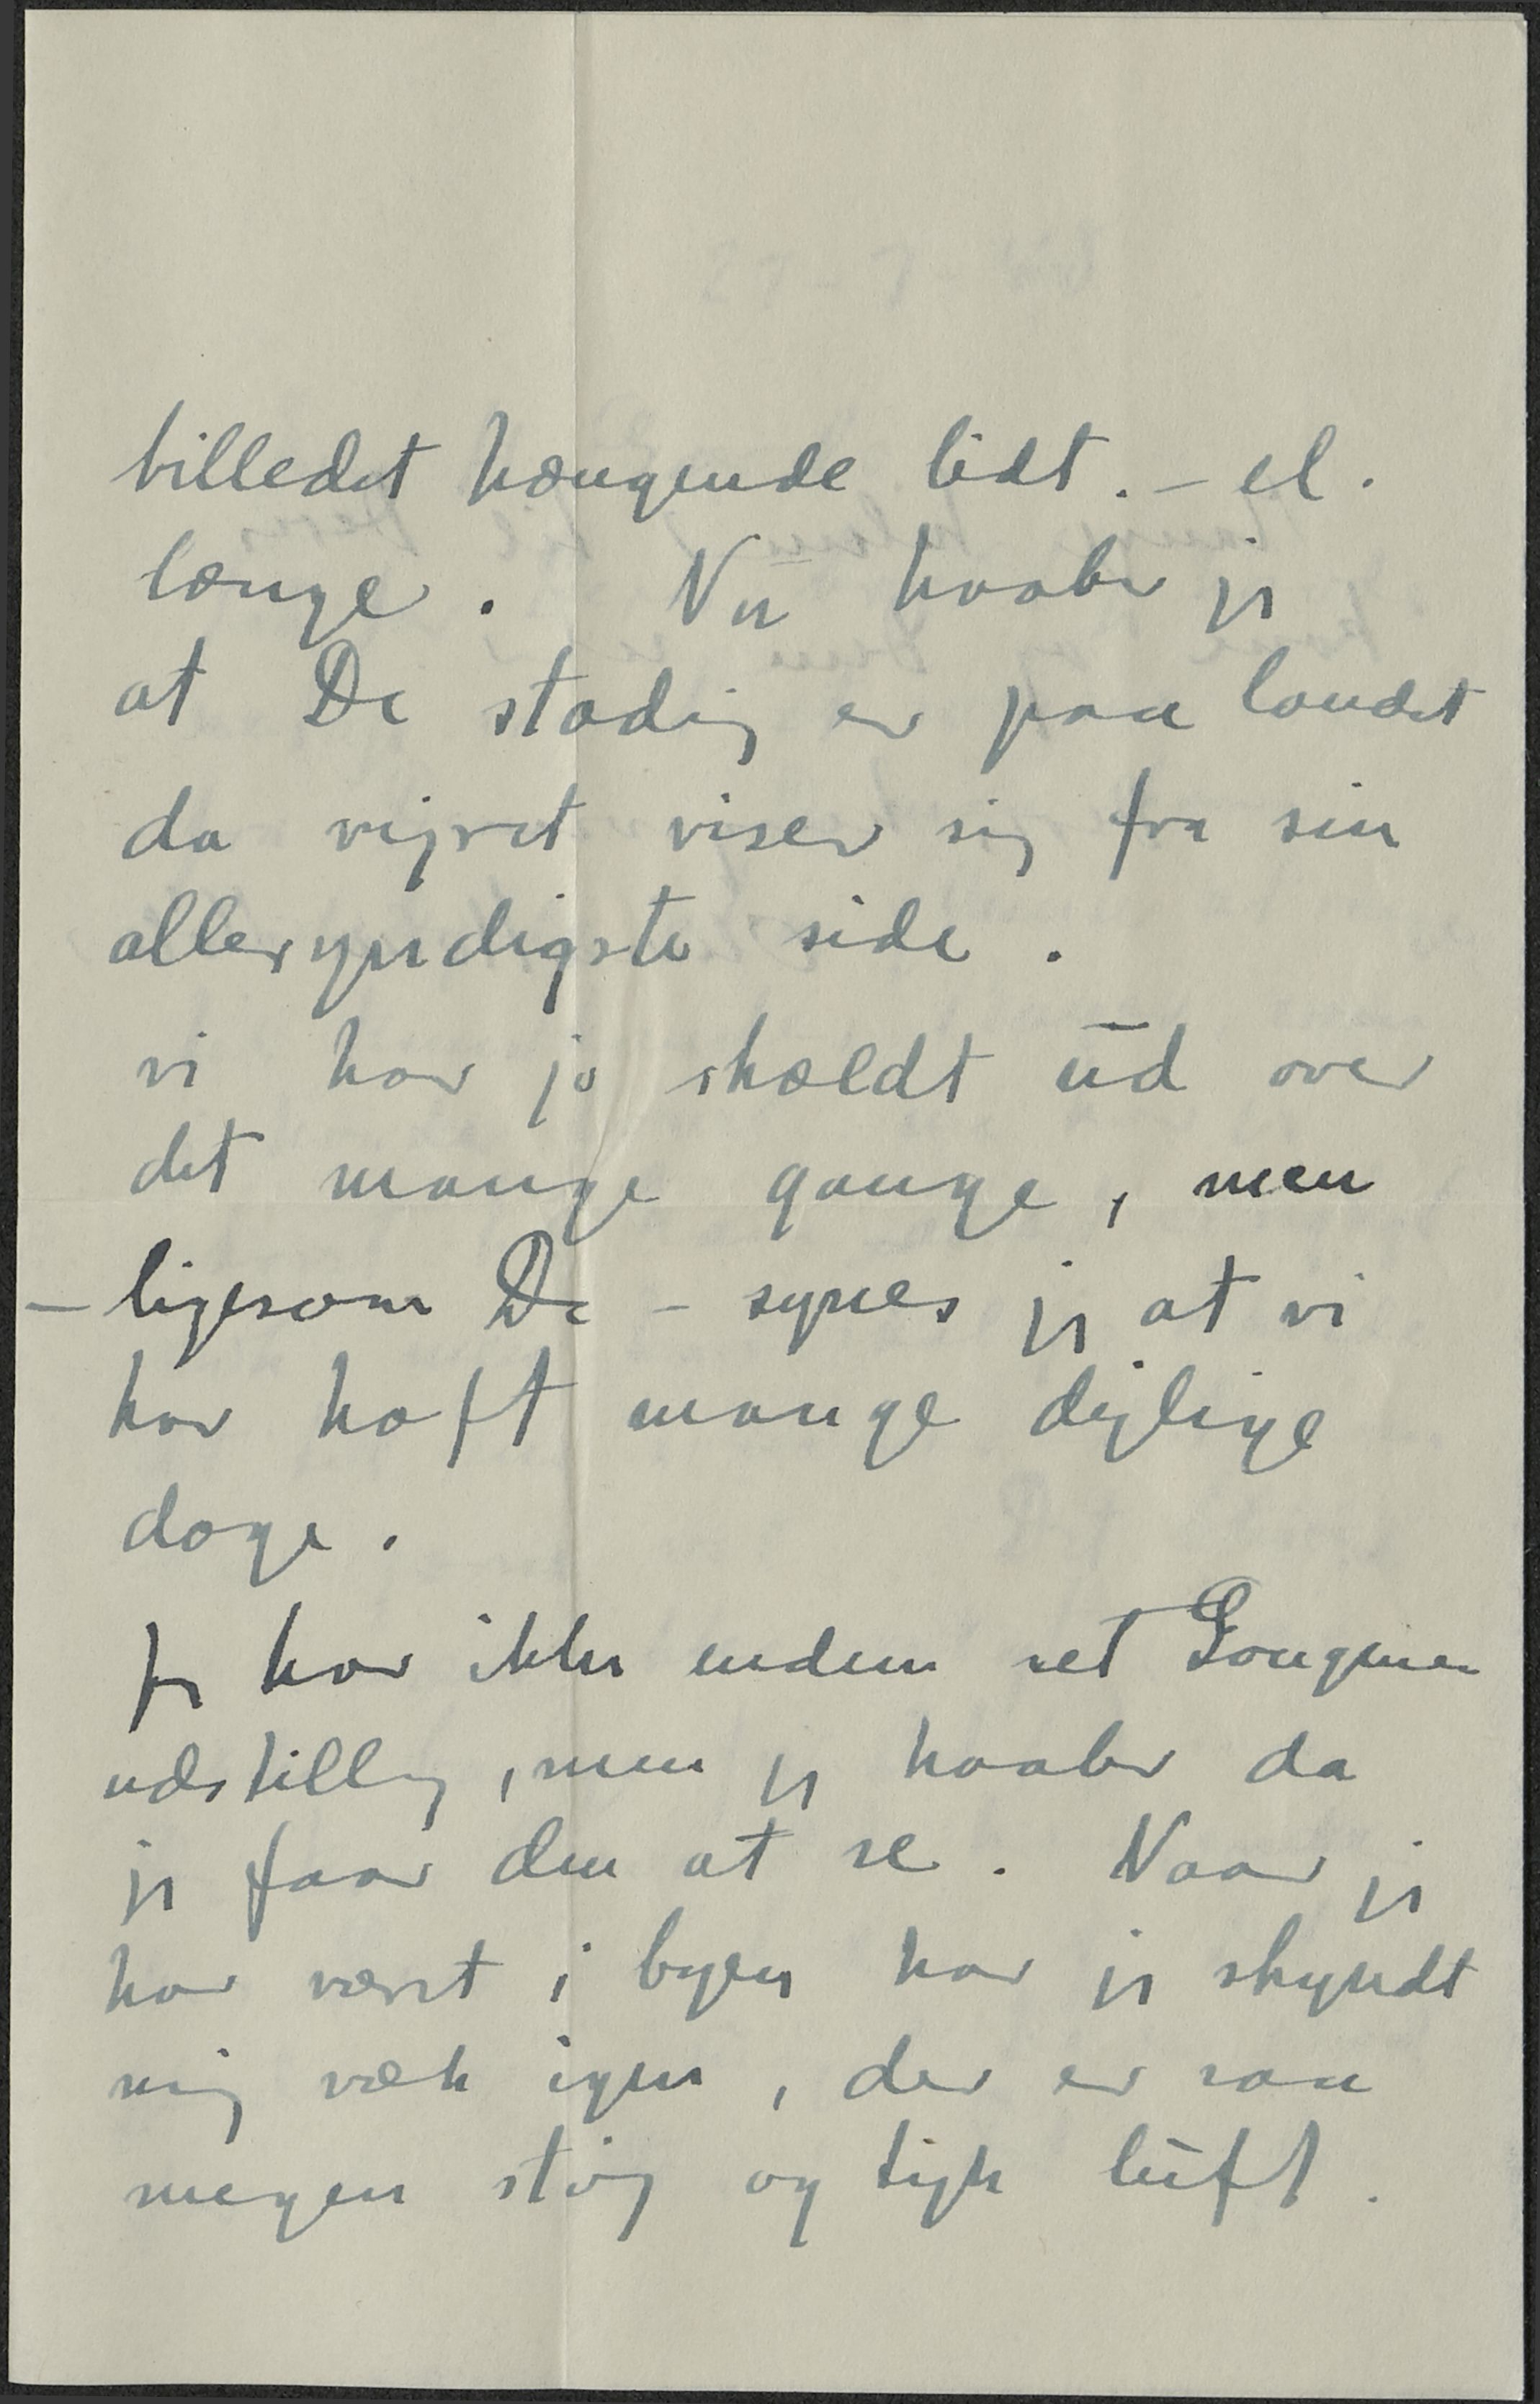 billedet hængende lidt. – el.
længe. Nu haaber jeg
at De stadig er paa landet
da vejret viser sig fra sin
alleryndigste side.
vi har jo skældt ud over
det mange gange, men
– ligesom De – synes jeg at vi
har haft mange dejlige
dage.
Jeg har ikke endnu set
udstilling, men jeg haaber da
jeg faar den at se. Naar jeg
har været i byen har jeg skyndt
mig væk igen, der er saa
megen støj og tyk luft.